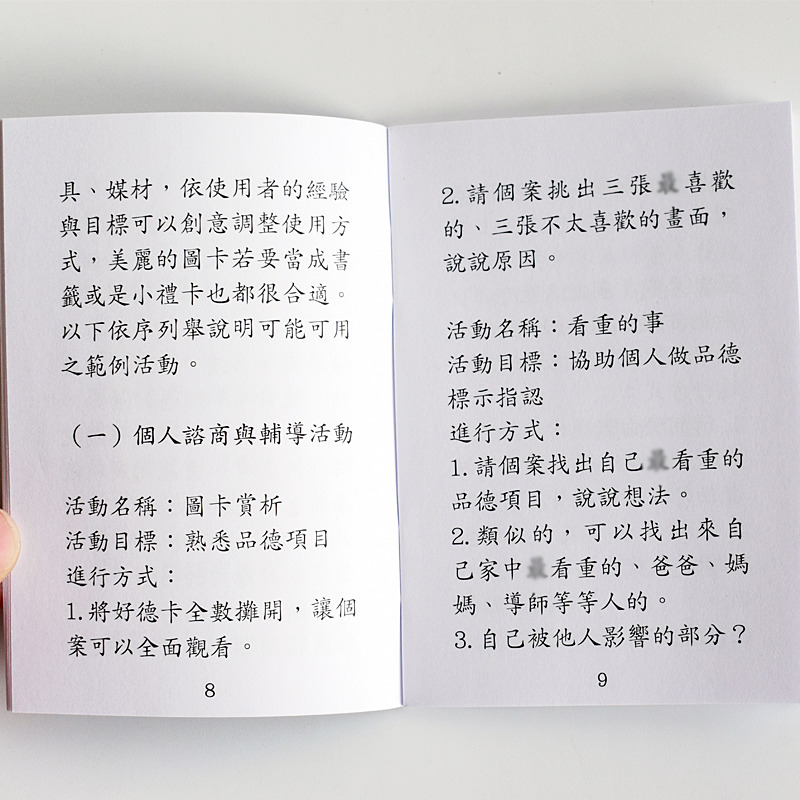 具、媒材，依使用者的經驗
與目標可以創意調整使用方
式，美麗的圖卡若要當成書
籤或是小禮卡也都很合適。
以下依序列舉說明可能可用
之範例活動。
（一）個人諮商與輔導活動
活動名稱：圖卡賞析
活動目標：熟悉品德項目
進行方式：
1.將好德卡全數攤開，讓個
案可以全面觀看。
8
2.請個案挑出三張喜歡
的、三張不太喜歡的畫面，
說說原因。
活動名稱：看重的事
活動目標：協助個人做品德
標示指認
進行方式：
1.請個案找出自己看重的
品德項目，說說想法。
2.類似的，可以找出來自
己家中看重的、爸爸、媽
媽、導師等等人的。
3.自己被他人影響的部分？
9